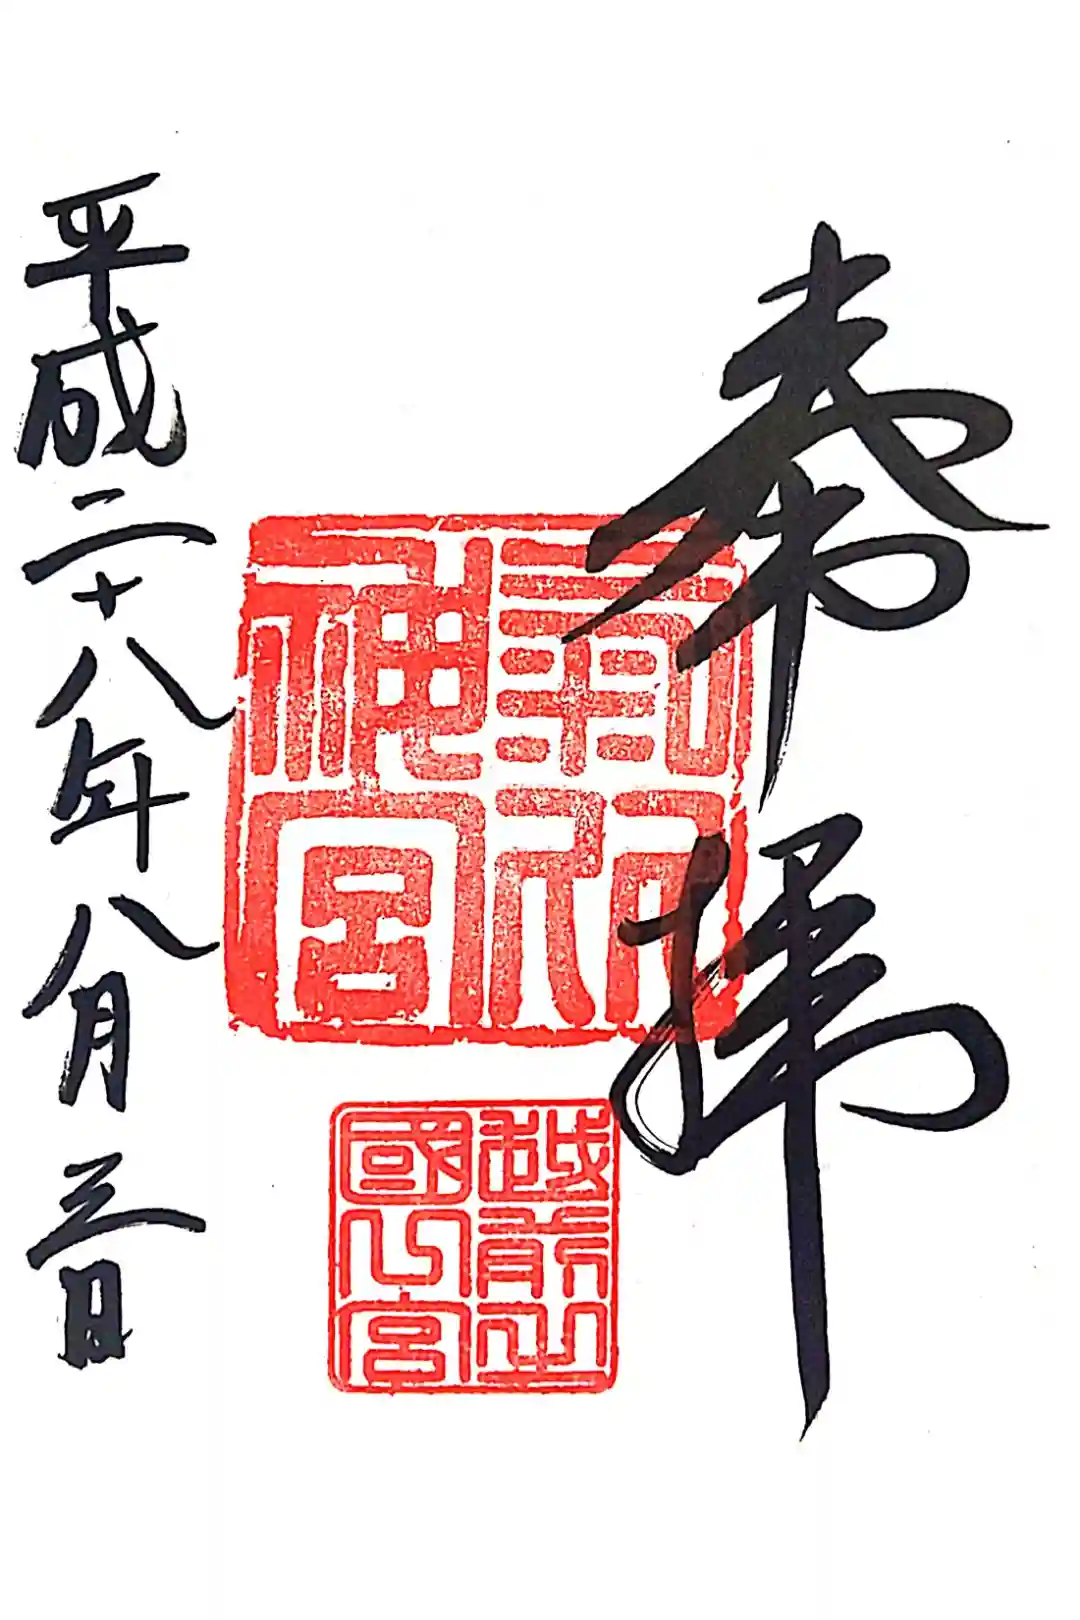 奉拝
氣比
神宮
越前之
國一宮
平成二十八年八月三日